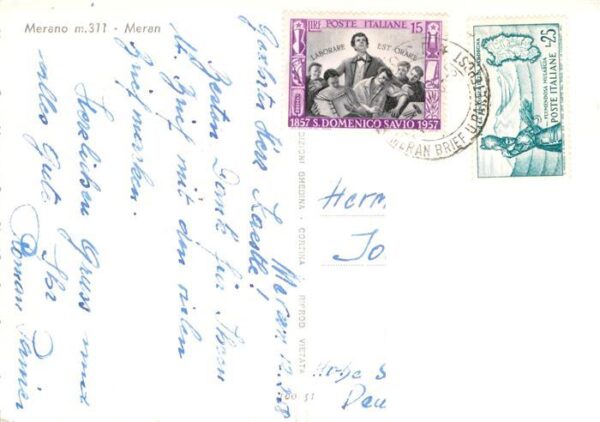 Merano m.311 - Meran
Meran, 12.3.58
Geehrter Herr Kaestle!
Besten Dank für Ihren
lb. Brief mit den vielen
Briefmarken.
Herzlichen Gruss und
alles Gute Ihr
Roman
LIRE POSTE ITALIANE 15
LABORARE EST ORARE
1857 S. DOMENICO SAVIO 1957
MERAN BRIEF U.
FLUMENDOSA MULARGIA
POSTE ITALIANE L.25
EDIZIONI GHEDINA - CORTINA
RIPROD. VIETATA
Herm
Jo
S
Deu
51